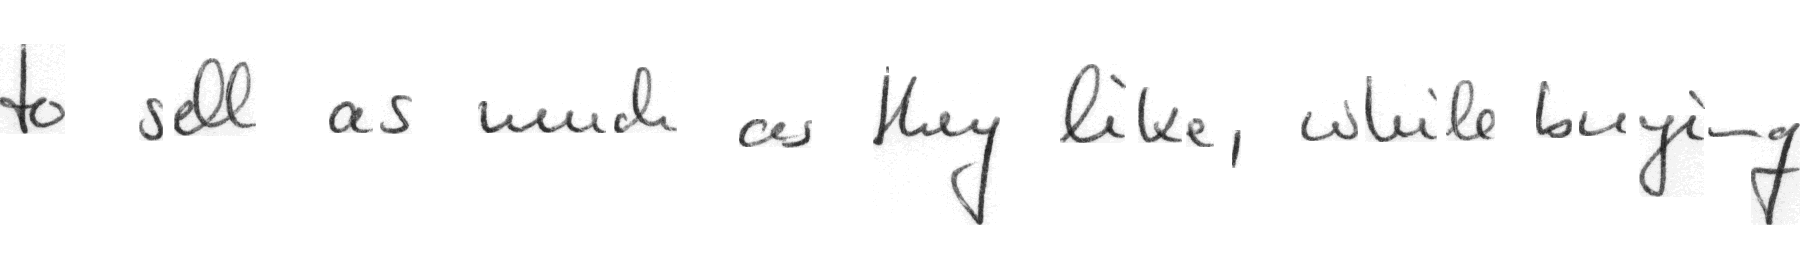 to sell as much as they like, while buying